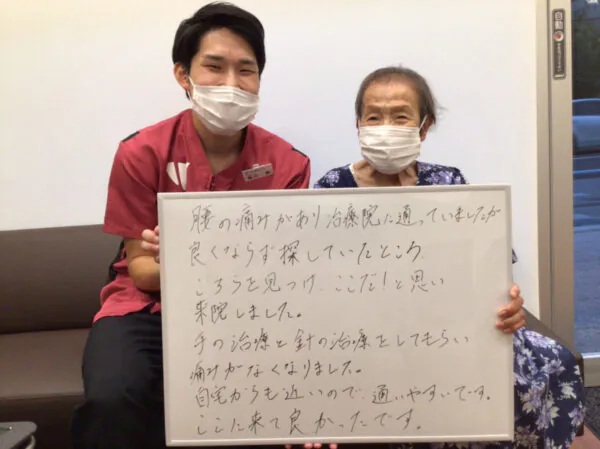 腰の痛みがあり治療院に通っていましたが
良くならず探していたところ、
こちらを見つけ、ここだ!と思い
来院しました。
手の治療と針の治療をしてもらい
痛みがなくなりました。
自宅からも近いので、通いやすいです。
ここに来て良かったです。
自動